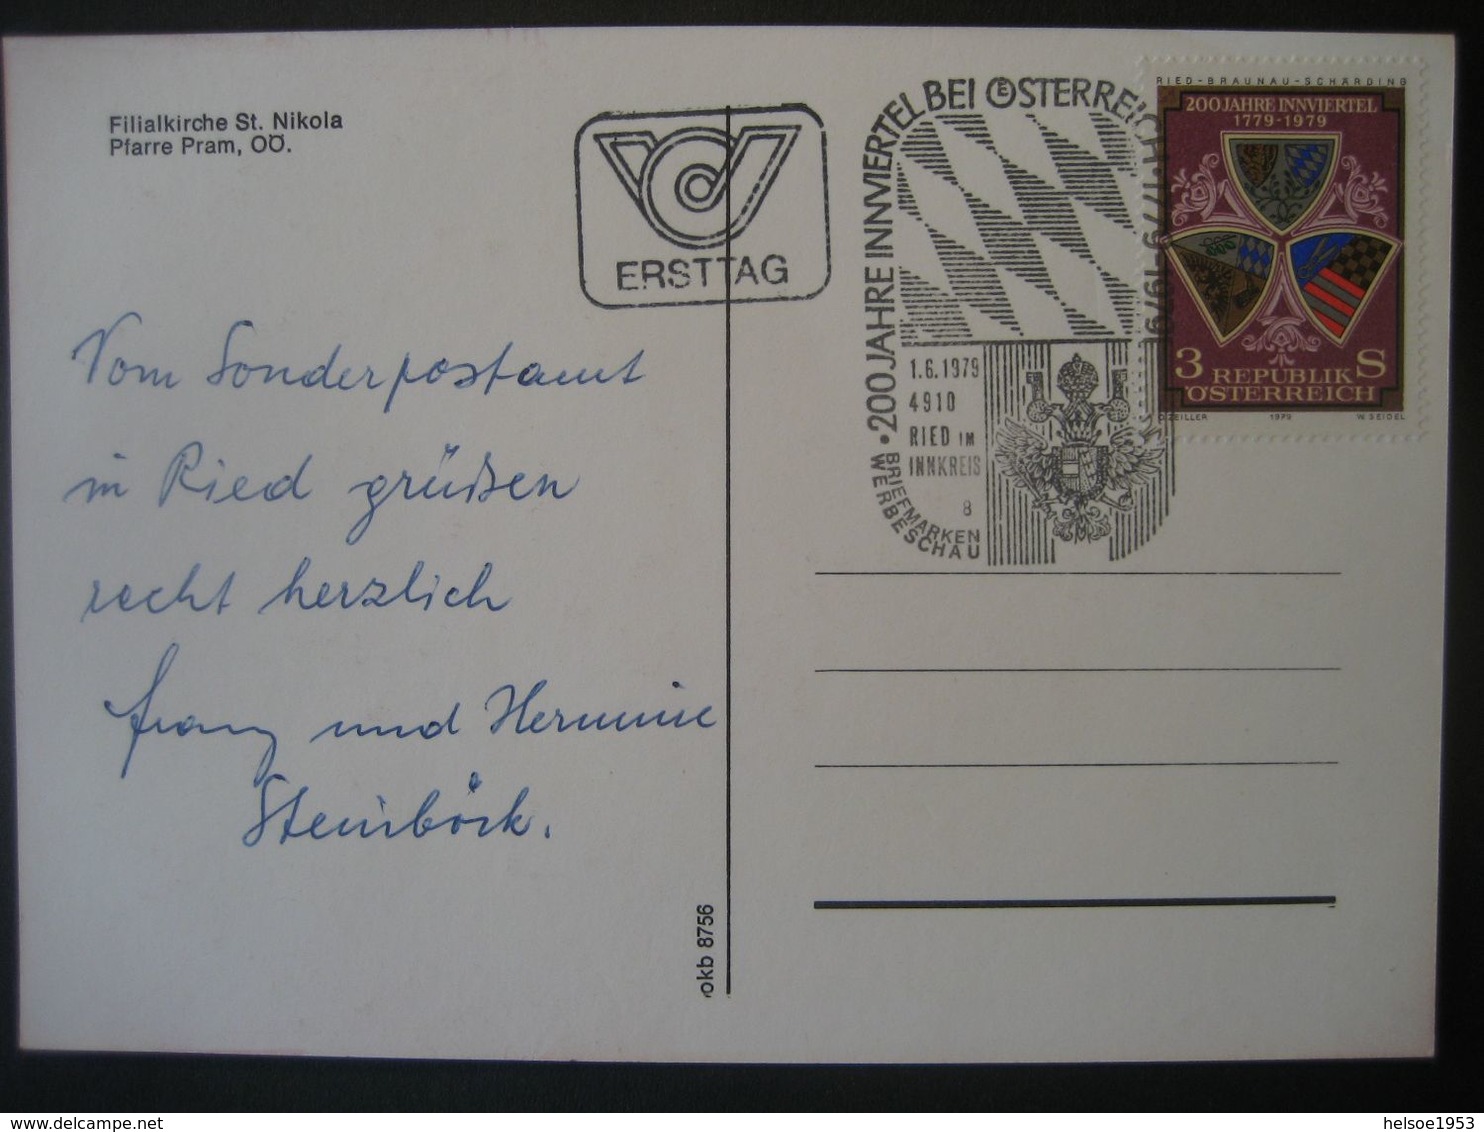 Filialkirche St. Nikola
Pfarre Pram, OÖ.
Vom Sonderpostamt
in Ried grüßen
recht herzlich
Franz und Hermine
Steinböck.
ERSTTAG
• 200 JAHRE INNVIERTEL BEI ÖSTERREICH • 1779-1979
1.6.1979
4910
RIED IM
INNKREIS
8
BRIEFMARKEN
WERBESCHAU
RIED-BRAUNAU-SCHÄRDING
200 JAHRE INNVIERTEL
1779-1979
3 S
REPUBLIK
ÖSTERREICH
O. ZEILLER 1979 W. SEIDEL
okb 8756
helsoe1953